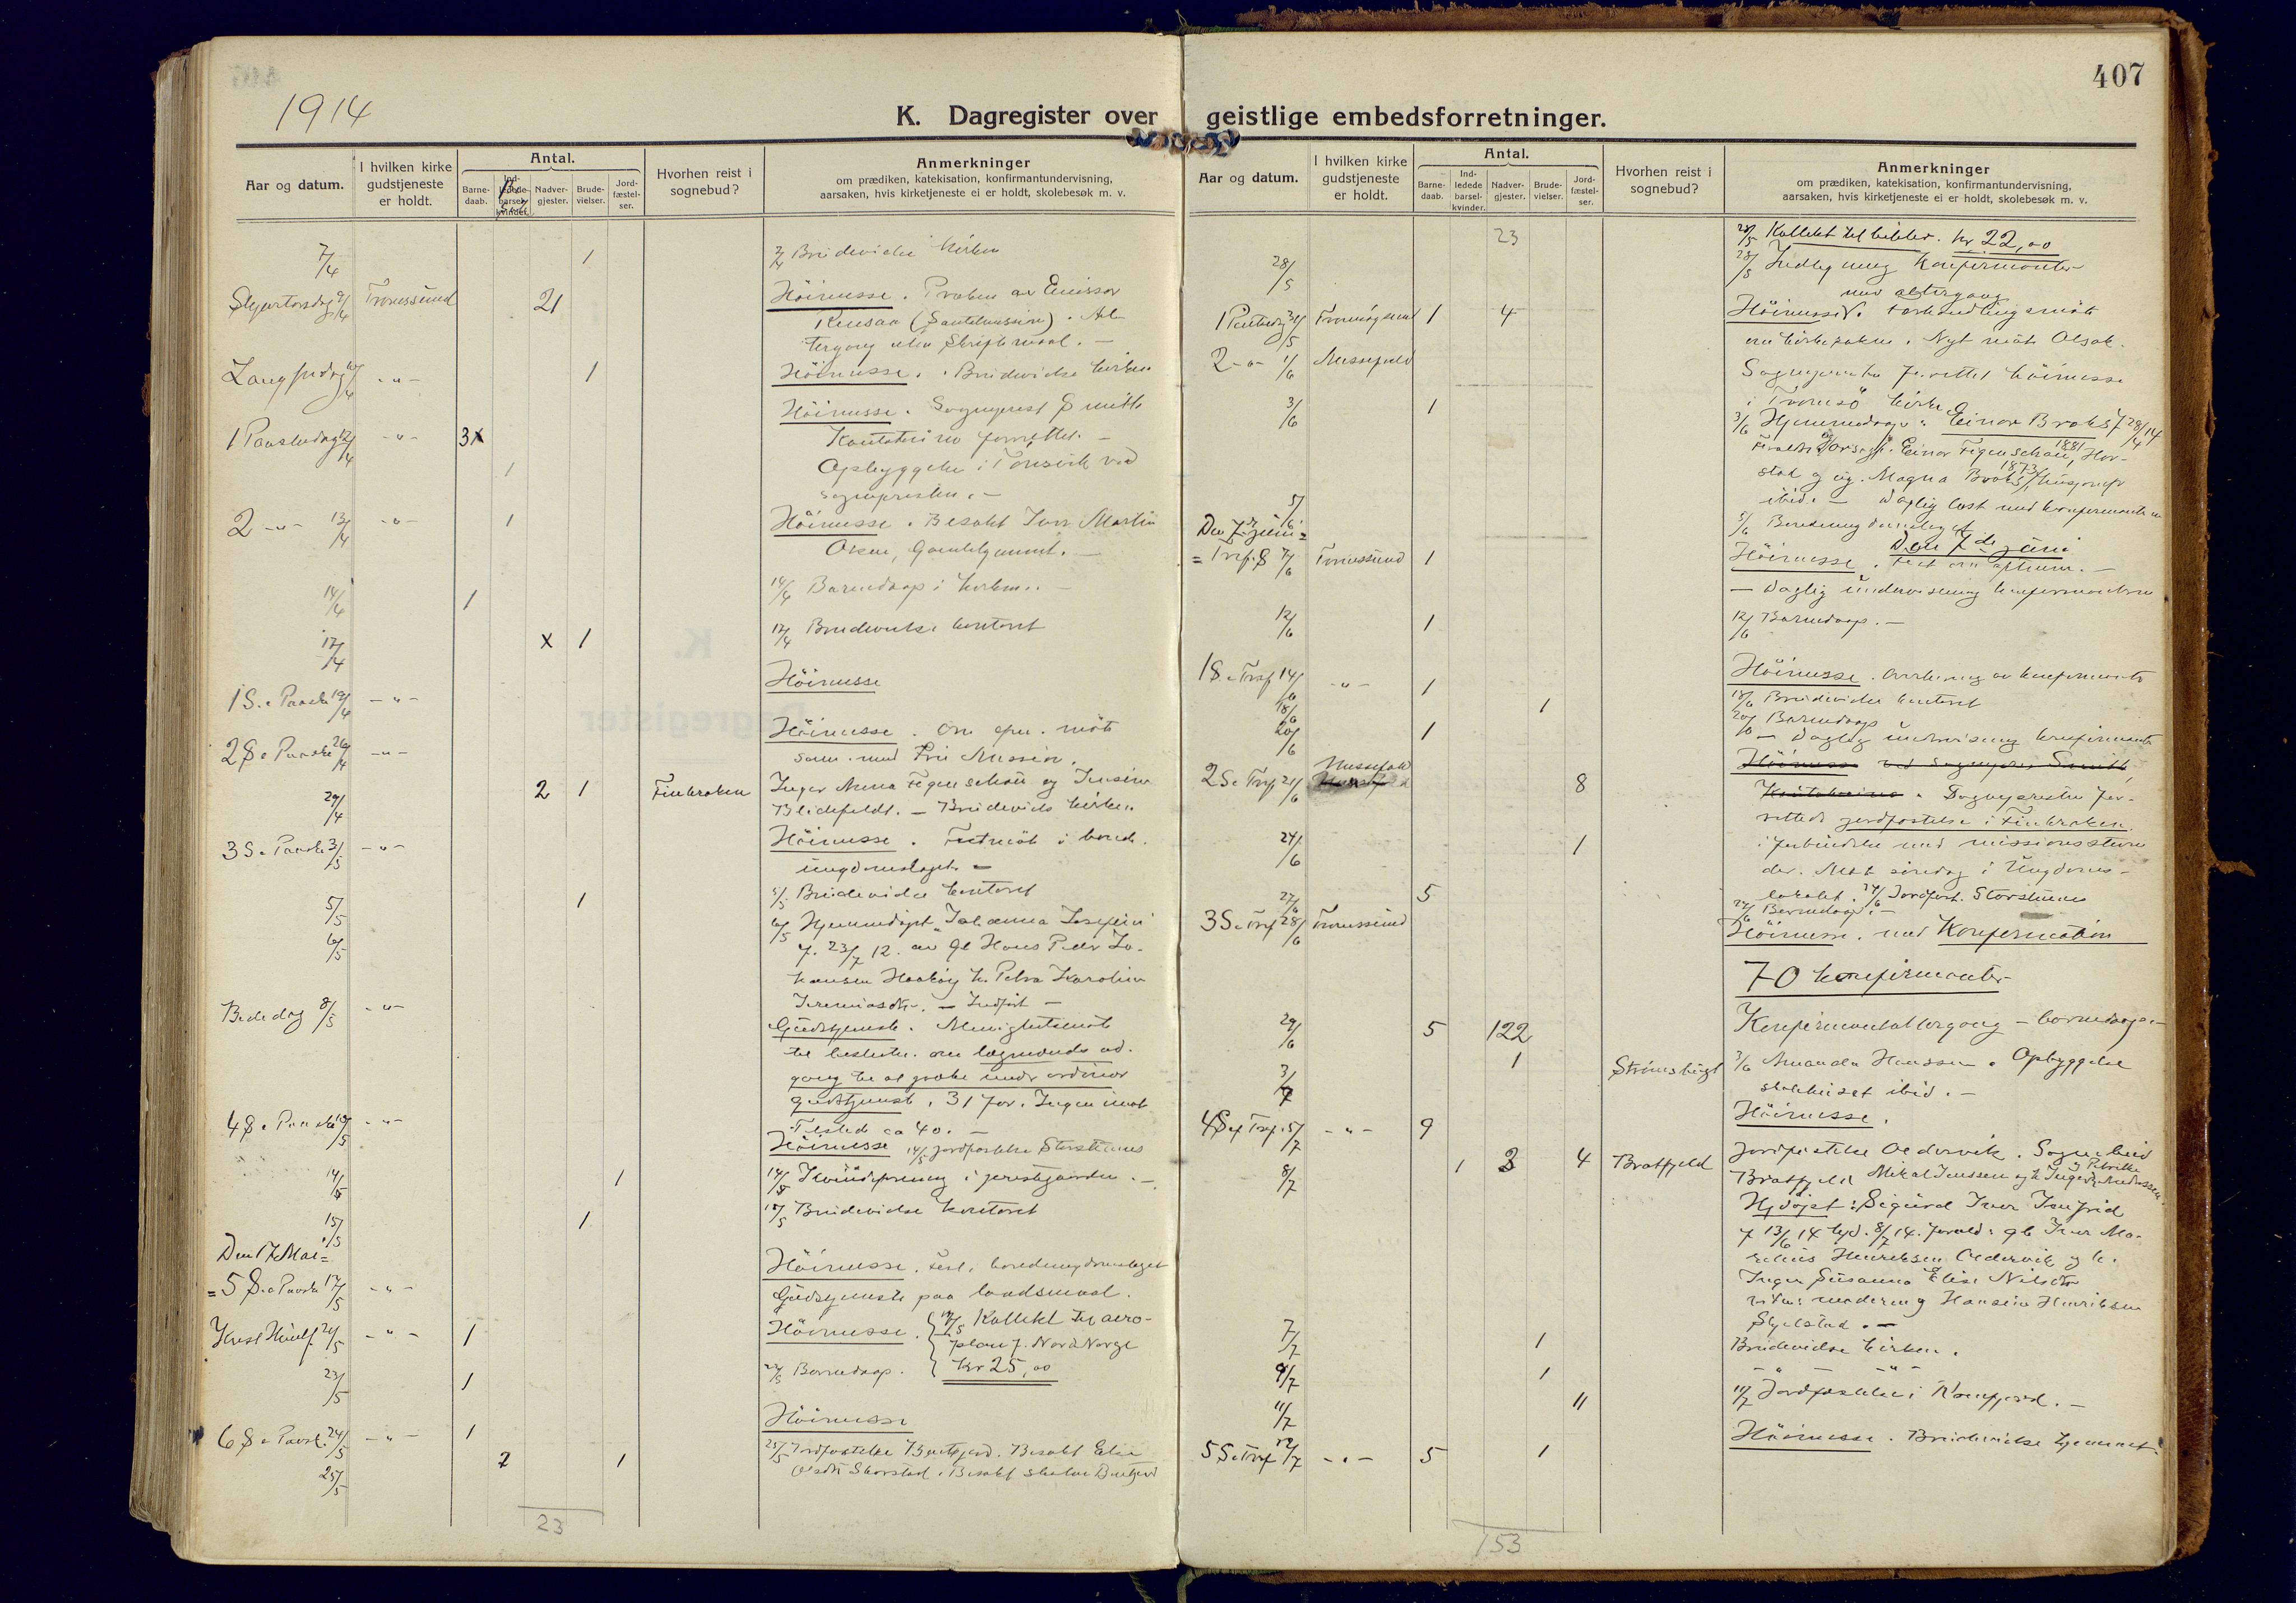 1914
K. Dagregister over
Aar og datum.
I hvilken kirke gudstjeneste er holdt.
Antal.
Barne-daab.
Ind-ledede barsel-kvinder.
Nadver-gjester.
Brude-vielser.
Jord-fæstel-ser.
Hvorhen reist i sognebud?
Anmerkninger
om prædiken, katekisation, konfirmantundervisning,
aarsaken, hvis kirketjeneste ei er holdt, skolebesøk m. v.
7/4 1 7/4 Brudevielse Kirken
Skjærtorsdag 9/4 Tromssund 21 Höimesse. Præken av Emissær
(Santalmission). Al-
tergang uten Skriftemaal. -
Langfredag 10/4 -"- 1 Höimesse. Brudevielse kirken
1 Paaskedag 12/4 -"- 3 x Höimesse. Sogneprest Smith
Kautokeino forrettet. -
1 Opbyggelse i Tønsvik ved
sognepresten. -
2 -"- 13/4 -"- 1 Höimesse. Besøkt Martin
Olsen, Gamlehjemmet. -
14/4 1 14/4 Barnedaap i kirken. -
17/4 x 1 17/4 Brudevielse kontoret
1 S. e Paaske 19/4 -"- Höimesse
2 S e Paaske 26/4 -"- Höimesse. møte
sam. med Fri Mission.
29/4 2 1 Finkroken Inger Anna Figenschou og
Blichfeldt. - Brudevielse kirken
3 S e Paaske 3/5 -"- Höimesse. Festmøte i bonde-
ungdomslaget -
5/5 1 5/5 Brudevielse kontoret
6/5 6/5 Hjemmedøpt "Johanna Josefine"
f. 23/7 12. av gb Hans Peder Jo-
hansen Haakøy h. Petra Karoline
Jeremiasdtr. - Indført -
Bededag 8/5 -"- Gudstjeneste. Menighetsmøte
til beslutn. om lægmænds ad-
gang til at præke under ordinær
gudstjeneste. 31 for. Ingen imot
Tilsted ca 40. -
4 S e Paaske 10/5 -"- Höimesse 14/5 jordfæstelse Storsteines
14/5 1 14/5 Kvindeforening i prestegaarden. -
15/5 1 15/5 Brudevielse kontoret
Den 17 Mai =
= 5 S. e Paaske 17/5 -"- Höimesse. fest i bondeungdomslaget
Gudstjeneste paa landsmaal.
Krist Himlf. 21/5 -"- 1 Höimesse. 17/5 Kollekt til aero-
plan f. Nord Norge
Kr 25,00
23/5 1 23/5 Barnedaap.
6 S e Paask. 24/5 -"- 1 Höimesse
25/5 2 1 25/5 Jordfæstelse. Besøkt
Skarstad. Besøkt skolen
23
407
geistlige embedsforretninger.
Aar og datum.
I hvilken kirke gudstjeneste er holdt.
Antal.
Barne-daab.
Ind-ledede barsel-kvinder.
Nadver-gjester.
Brude-vielser.
Jord-fæstel-ser.
Hvorhen reist i sognebud?
Anmerkninger
om prædiken, katekisation, konfirmantundervisning,
aarsaken, hvis kirketjeneste ei er holdt, skolebesøk m. v.
23 28/5 Kollekt til bibler. kr 22,00
28/5 28/5 Konfirmanter
med altergang
1 Pintsedag 31/5 1 4 Höimesse. Forhandlingsmøte
om kirkesaken. Nyt møte
2 -"- 1/6 Sognepresten forrettet höimesse
i Tromsø kirke
3/6 1 3/6 Hjemmedaap "Einar Broks" f 28/4 14
Einar Figenschou 1881, Har-
stad og ug. Magna Broks 1873, husjomfr
ibid. - Daglig læst med konfirmanterne
5/6 5/6 Beretning
Den 7 juni =
= Tref. S 7/6 Tromssund 1 Höimesse. Den 7de juni
Fest om aftenen. -
- Daglig undervisning konfirmanterne
12/6 1 12/6 Barnedaap. -
1 S. e Tref 14/6 -"- 1 Höimesse. Overhøring av konfirmanter
18/6 1 18/6 Brudevielse kontoret
20/6 1 20/6 Barnedaap
- Daglig undervisning konfirmanter
2 S e Tref 21/6 8 Höimesse ved sogneprest Smith
Kautokeino. Sognepresten for-
rettede jordfæstelse i Finkroken
24/6 1 i forbindelse med missionsstevne
der. Møte søndag i Ungdoms-
lokalet. 24/6 Jordfæst. Storsteines
27/6 5 27/6 Barnedaap. -
3 S e Tref 28/6 Tromssund Höimesse. med Konfirmation
70 konfirmanter
29/6 5 122 Konfirmantaltergang - barnedaap. -
3/7 1 Amanda Hanssen. Opbyggelse
skolehuset ibid. -
4 S ef Tref. 5/7 -"- 9 Höimesse.
8/7 1 3 4 Bratfjeld Jordfæstelse Oldervik. Sognebud
Bratfjeld Mikal Jenssen
Hjdøpt: Sigurd Iver
f 13/6 14 hjd. 8/7 14. foreld: gb Iver Ma-
relius Henriksen Oldervik og h.
Inger Susanna Elise Nilsdtr
Hansine Henriksen
Skjelstad. -
7/7 1 Brudevielse kirken.
9/7 1 -"- -"-
11/7 11 11/7 Jordfæstelse i
5 S e Tref 12/7 -"- 5 1 Höimesse. Brudevielse hjemmet.
153